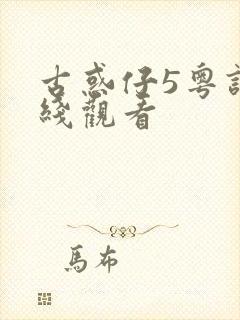 古惑仔5粤語
綫觀看
馬布